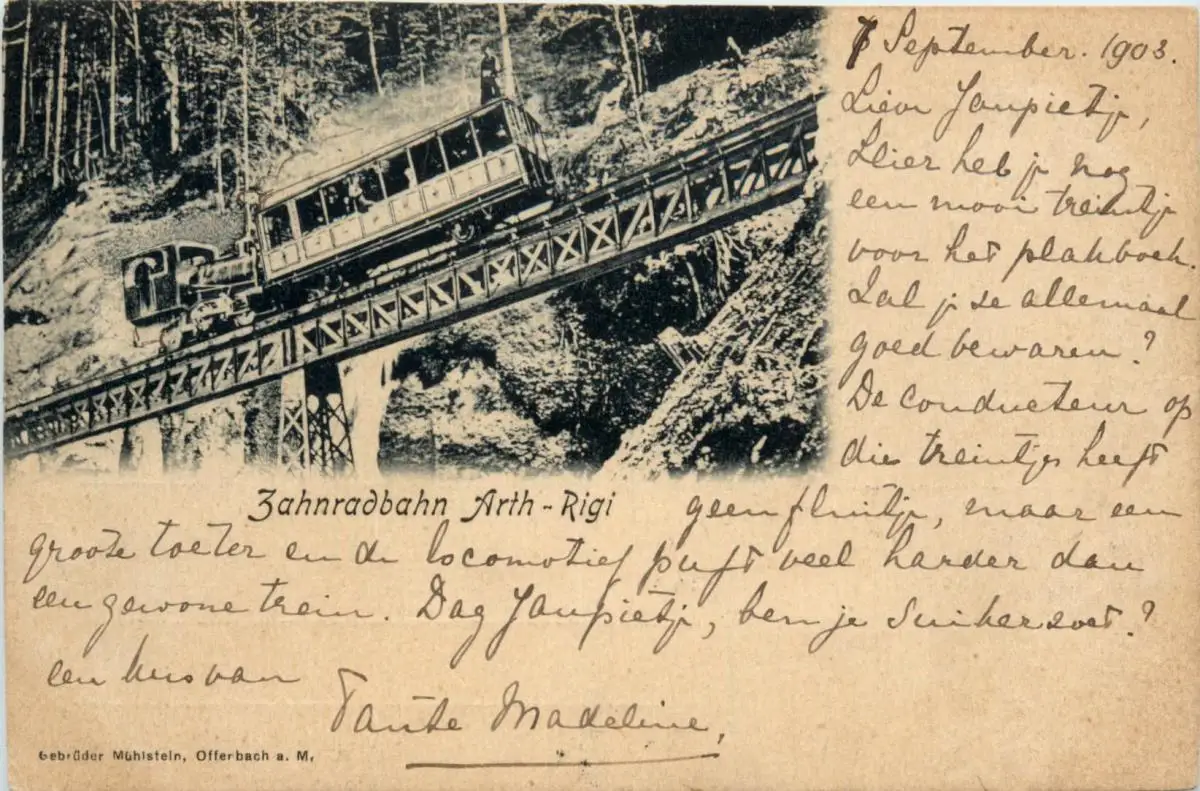 7 September. 1903.
Lieve Janpietje,
Hier heb je nog
een mooi treintje
voor het plakboek.
Zal je ze allemaal
goed bewaren?
De conducteur op
die treintjes heeft
geen fluitje, maar een
groote toeter en de locomotief puft veel harder dan
een gewone trein. Dag Janpietje, ben je suikerzoet?
een kus van
Tante Madeline,
Zahnradbahn Arth-Rigi
Gebrüder Mühlstein, Offerbach a. M.